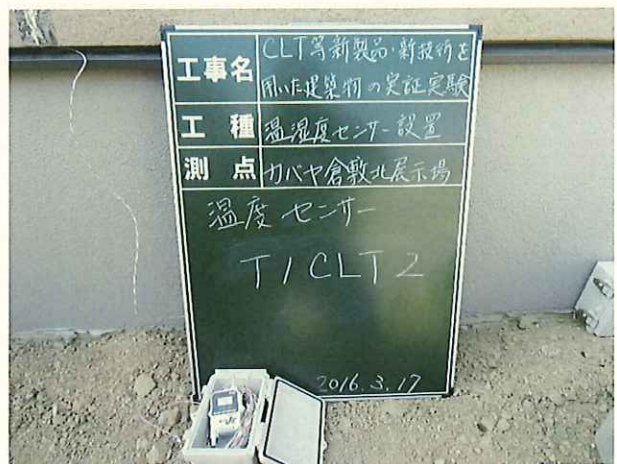 工事名 CLT等新製品・新技術を
用いた建築物の実証実験
工種 温湿度センサー設置
測点 カバヤ倉敷北展示場
温度センサー
T1CLT2
2016.3.17